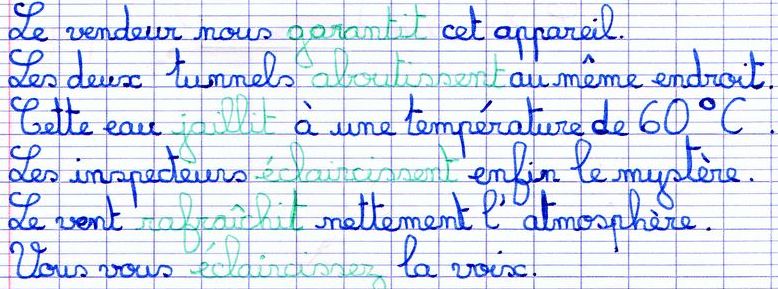 Le vendeur nous garantit cet appareil.
Les deux tunnels aboutissent au même endroit.
Cette eau jaillit à une température de 60°C.
Les inspecteurs éclaircissent enfin le mystère.
Le vent rafraîchit nettement l'atmosphère.
Vous vous éclaircissez la voix.